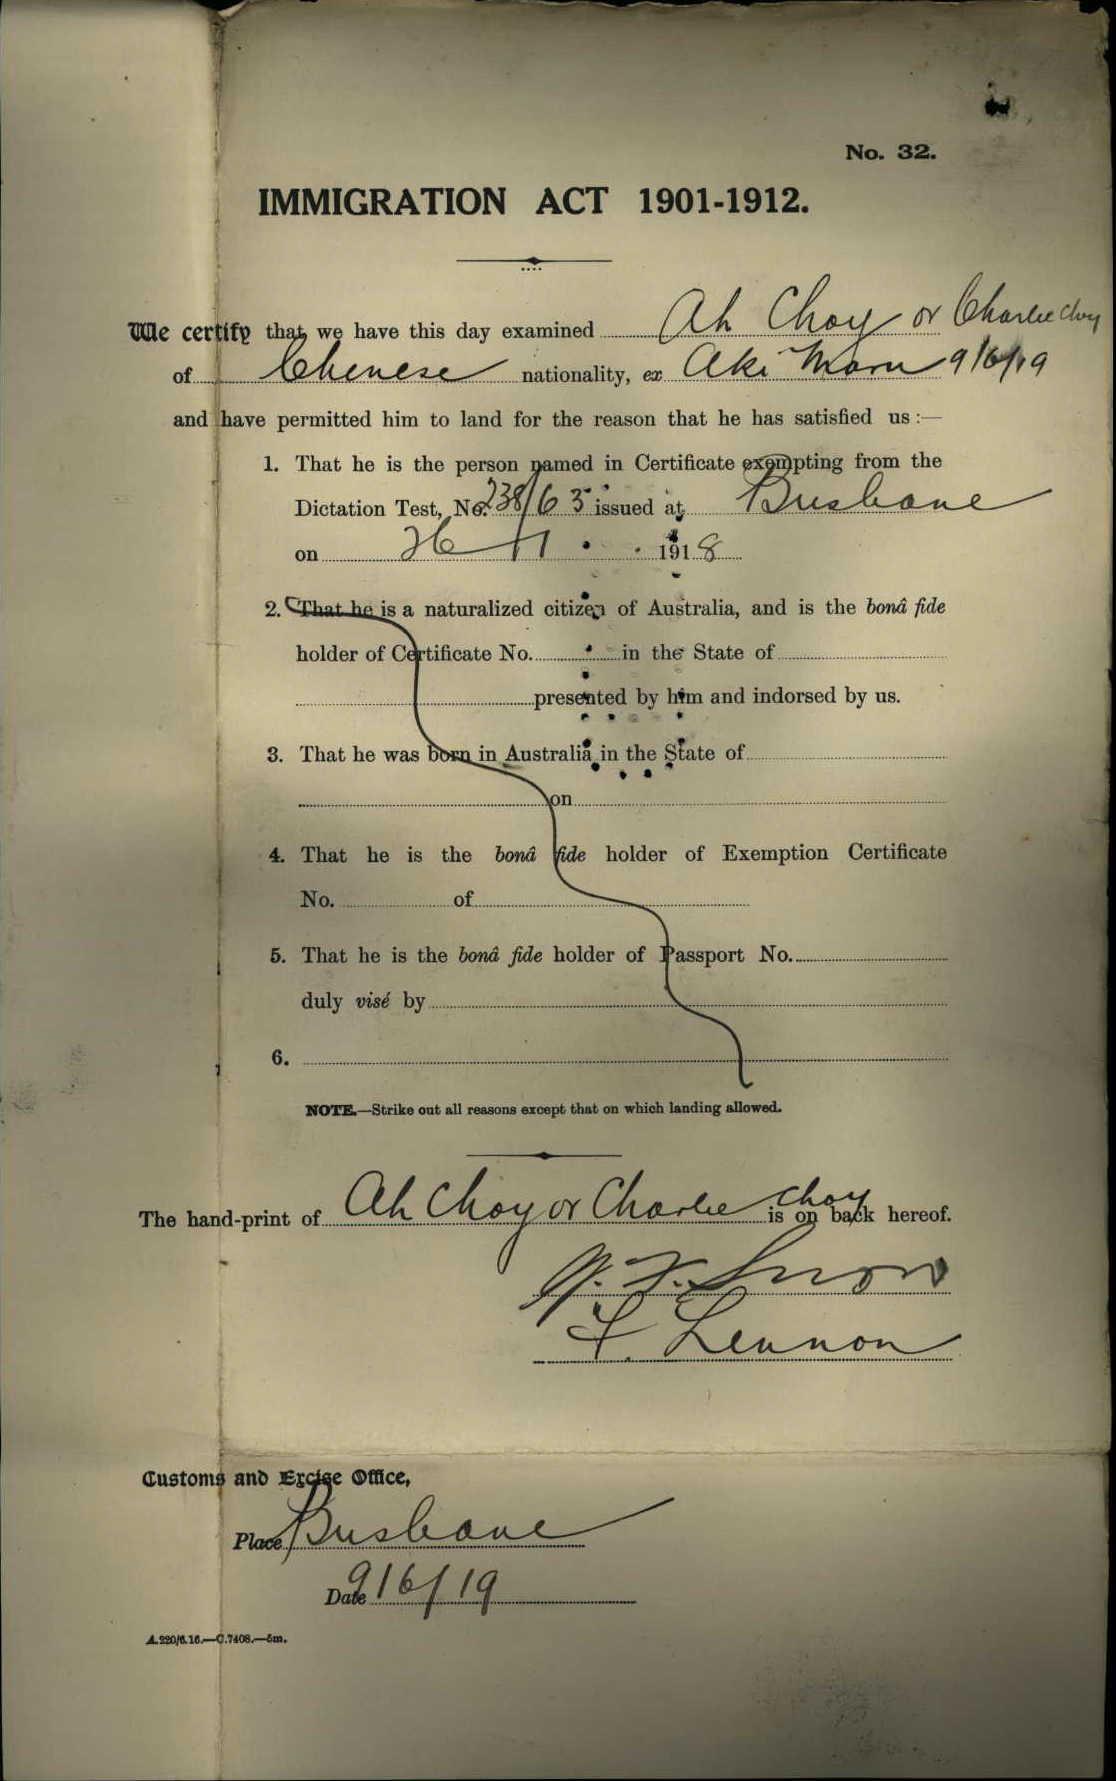 No. 32.
IMMIGRATION ACT 1901-1912.
We certify that we have this day examined Ah Choy or Charlie Choy
of Chinese nationality, ex Aki Maru 9/6/19
and have permitted him to land for the reason that he has satisfied us :—
1. That he is the person named in Certificate exempting from the
Dictation Test, No. 238/63 issued at Brisbane
on 26/11 1918
2. That he is a naturalized citizen of Australia, and is the bonâ fide
holder of Certificate No. in the State of
presented by him and indorsed by us.
3. That he was born in Australia in the State of
on
4. That he is the bonâ fide holder of Exemption Certificate
No. of
5. That he is the bonâ fide holder of Passport No.
duly visé by
6.
NOTE.—Strike out all reasons except that on which landing allowed.
The hand-print of Ah Choy or Charlie Choy is on back hereof.
Snow
F. Lennon
Customs and Excise Office,
Place Brisbane
Date 9/6/19
A.220/6.16.—C.7408.—5m.